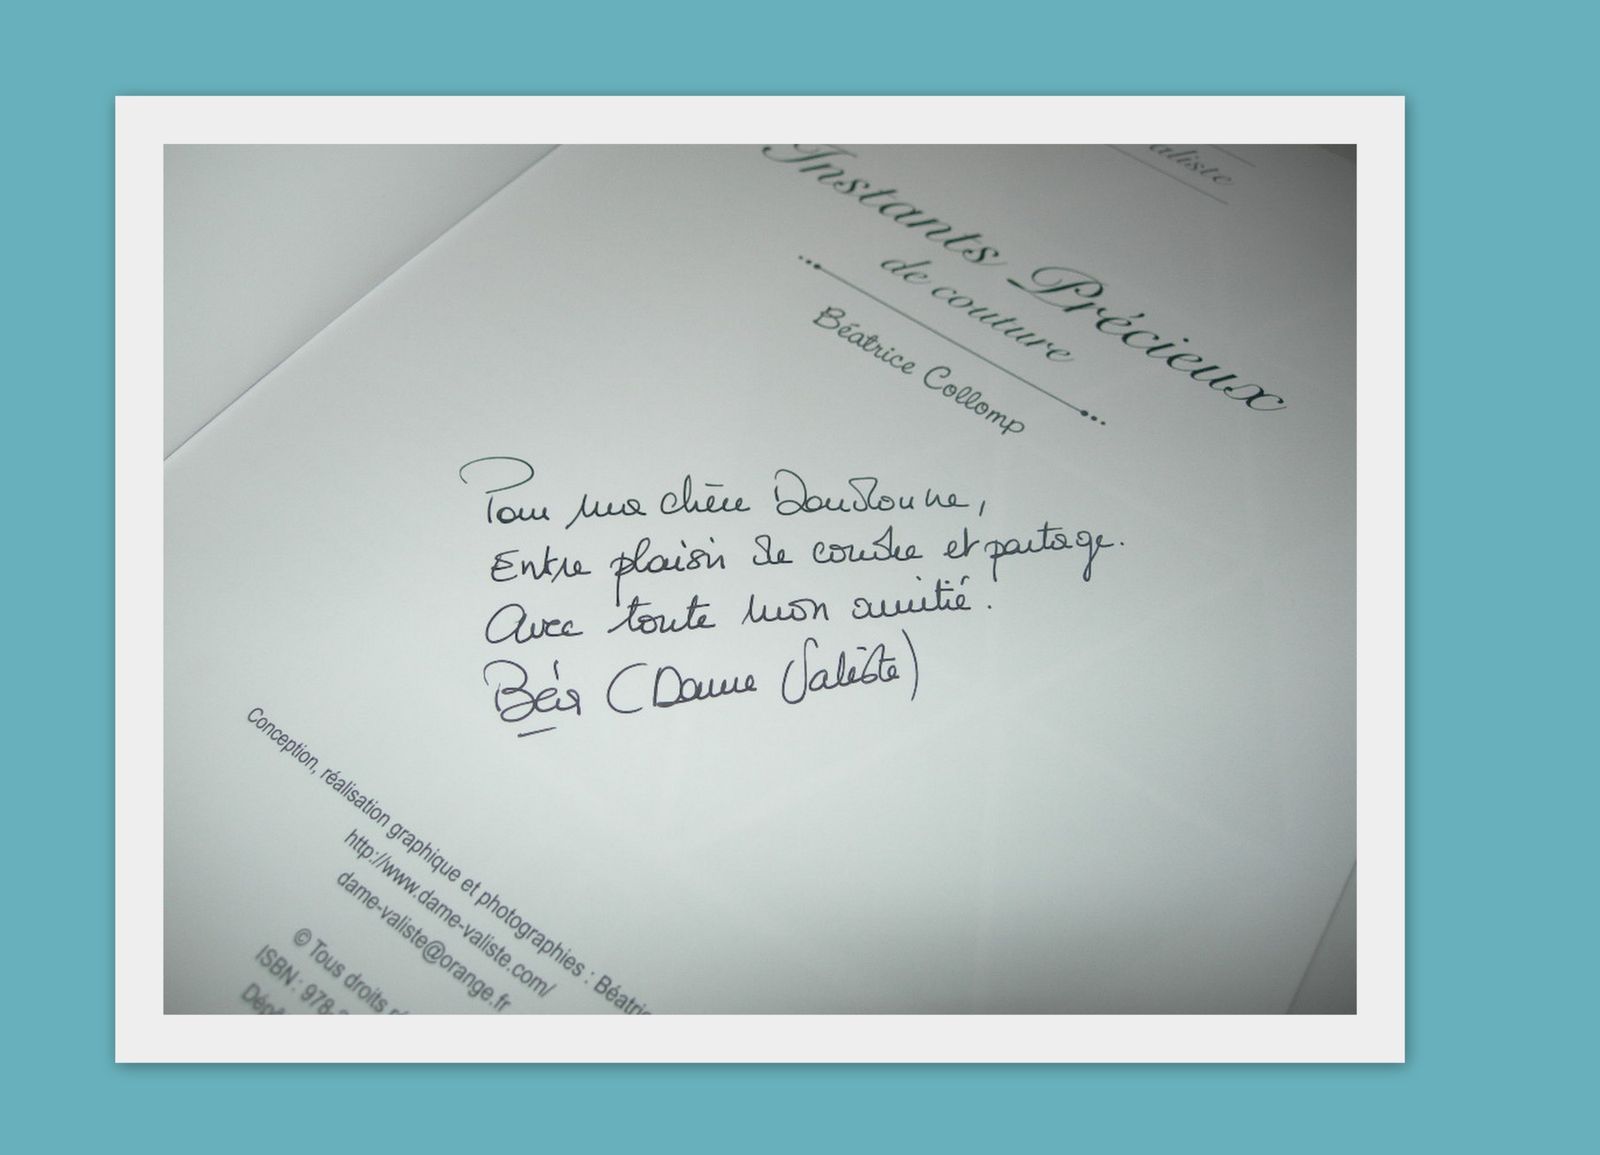 aliste
Instants Précieux
de couture
Béatrice Collomp
Pour ma chère Doudoune,
Entre plaisir de coudre et partage.
Avec toute mon amitié.
Béa (Dame Valiste)
Conception, réalisation graphique et photographies : Béatric
http://www.dame-valiste.com/
dame-valiste@orange.fr
© Tous droits ré
ISBN : 978-
Dépô